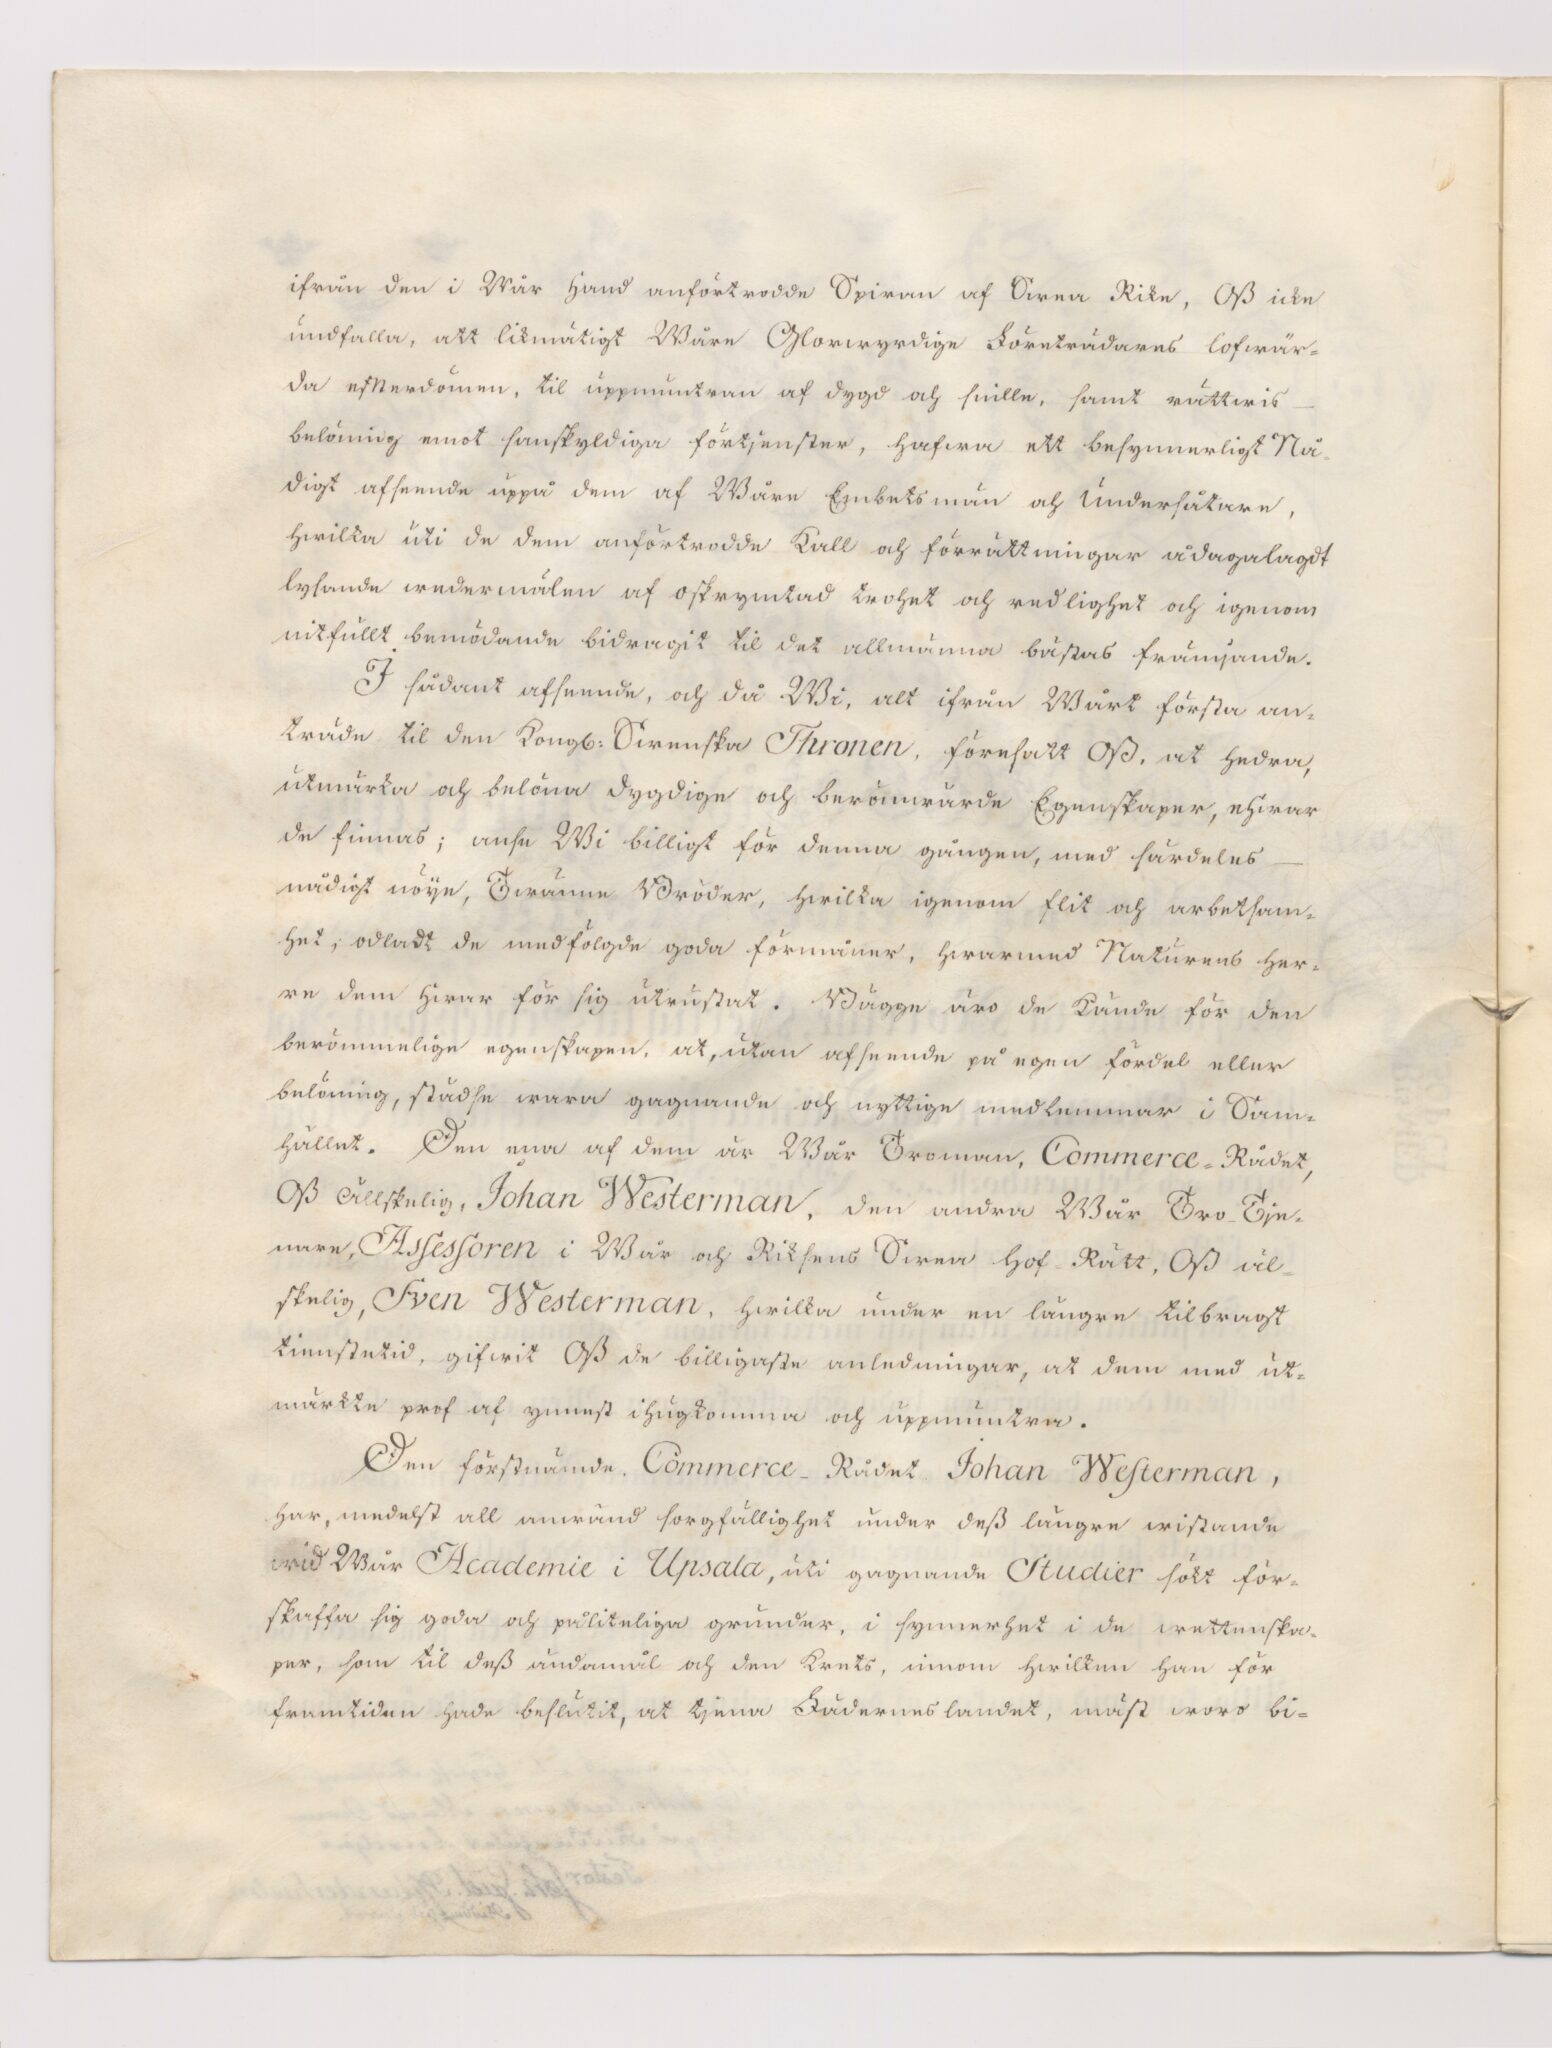 ifrån den i Wår Hand anförtrodde Spiran af Swea Rike, Oß icke
undfalla, att likmätigt Wåre Glorwyrdige Företrädares lofwär=
da efterdömen, til uppmuntran af dygd och snille, samt rättwis
belöning emot sanskyldiga förtjenster, hafwa ett besynnerligt Nå=
digt afseende uppå dem af Wåre Embetsmän och Undersåtare,
hwilka uti de dem anförtrodde Kall och förrättningar ådagalagdt
lysande wedermälen af oskrymtad trohet och redlighet och igenom
nitfullt bemödande bidragit til det allmänna bästas främjande.
I sådant afseende, och då Wi, alt ifrån Wårt första an=
träde til den Kongl: Swenska Thronen, föresatt Oß, at hedra,
utmärka och belöna dygdige och berömwärde Egenskaper, ehwar
de finnas; anse Wi billigt för denna gången, med särdeles
nådigt nöye, Twänne Bröder, hwilka igenom flit och arbetsam=
het, odladt de medfölgde goda förmåner, hwarmed Naturens Her=
re dem hwar för sig utrustat. Bägge äro de Kände för den
berömmelige egenskapen, at, utan afseende på egen fördel eller
belöning, städse wara gagnande och nyttige medlemmar i Sam=
hället. Den ena af dem är Wår Troman, Commerce=Rådet,
Oß Älskelig, Johan Westerman, den andra Wår Tro-Tje=
nare, Assessoren i Wår och Riksens Swea Hof-Rätt, Oß äl=
skelig, Sven Westerman, hwilka under en längre tilbragt
tienstetid, gifwit Oß de billigaste anledningar, at dem med ut=
märkte prof af ynnest ihugkomma och uppmuntra.
Den förstnämde, Commerce-Rådet Johan Westerman,
har, medelst all anwänd sorgfällighet under deß längre wistande
wid Wår Academie i Upsala, uti gagnande Studier sökt för=
skaffa sig goda och påliteliga grunder, i synnerhet i de wettenska=
per, som til deß ändamål och den Krets, innom hwilken han för
framtiden hade beslutit, at tjena Fäderneslandet, mäst woro bi=